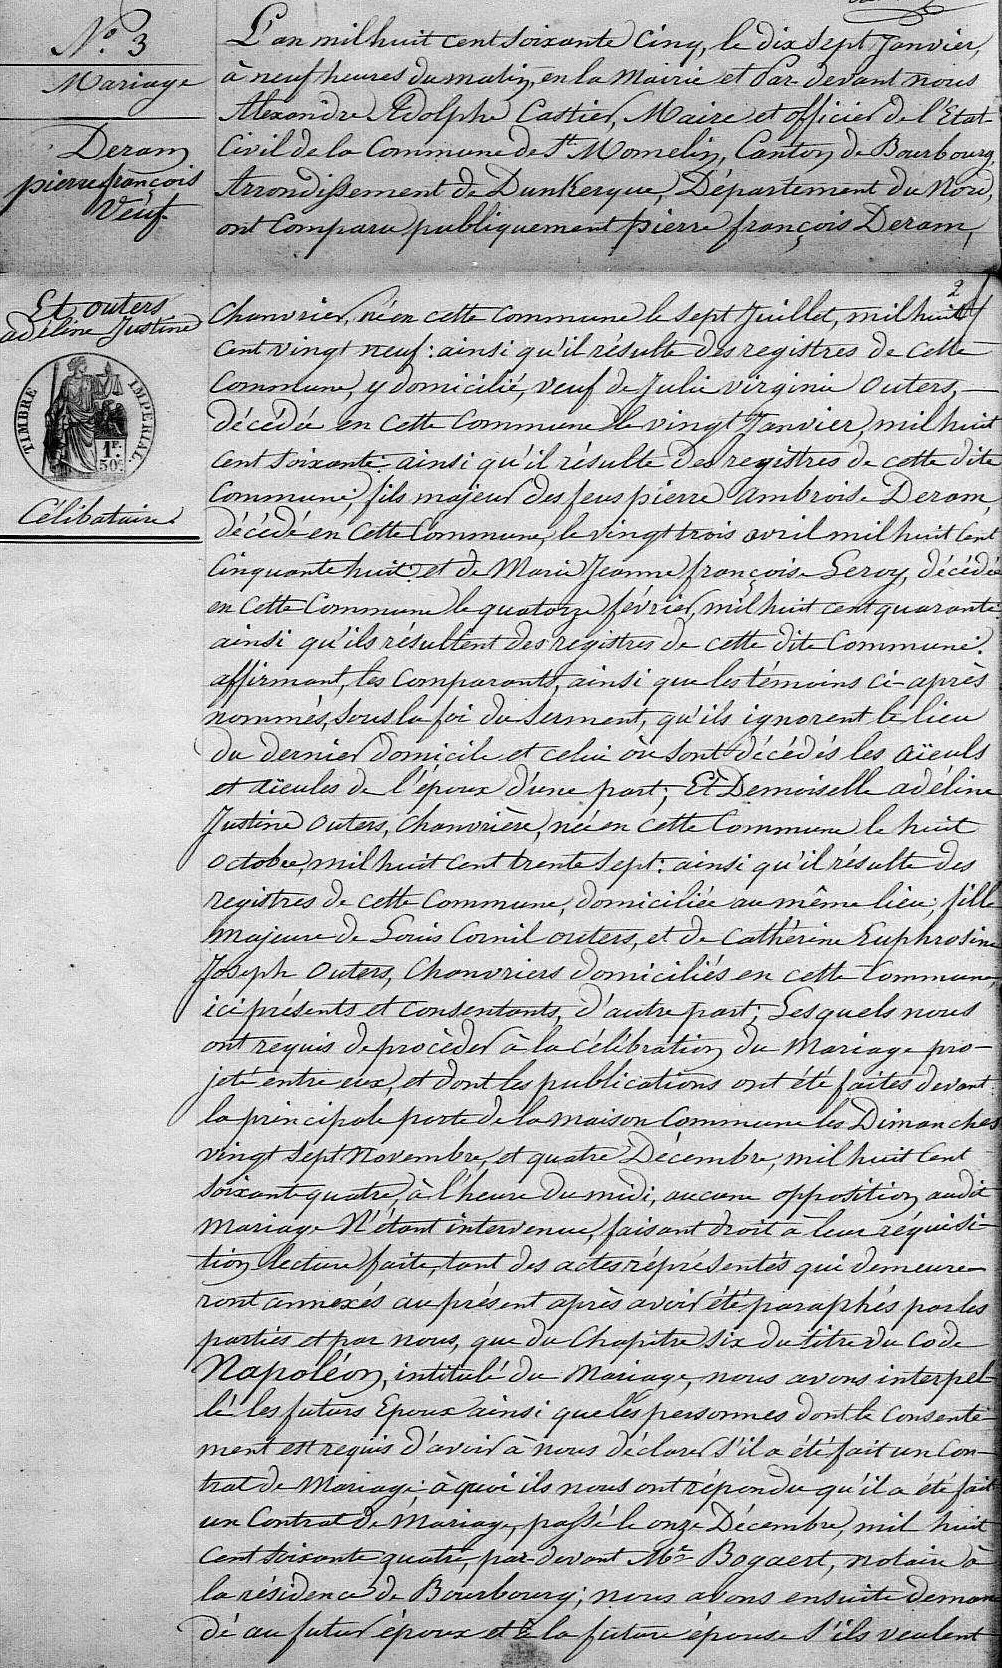 N.º 3
Mariage
Deram
pierre françois
Veuf.
L'an mil huit cent soixante cinq, le dix sept Janvier,
à neuf heures du matin, en la Mairie et Par-devant nous
Alexandre Adolphe Castier, Maire et officier de l'Etat-
Civil de la Commune de St Momelin, Canton de Bourbourg,
Arrondissement de Dunkerque, Département du Nord,
ont Comparu publiquement pierre françois Deram,
Et outers
adéline Justine
TIMBRE IMPERIAL.
1F.
50c.
Célibataire.
2
Chanvrier, né en cette commune le sept Juillet, mil huit
cent vingt neuf: ainsi qu'il résulte des registres de cette
Commune, y domicilié, veuf de Julie virginie outers,
décédée en cette Commune le vingt Janvier, mil huit
cent soixante: ainsi qu'il résulte des registres de cette dite
Commune, fils majeur des feus pierre Ambroise Deram,
décédé en cette Commune, le vingt trois avril mil huit Cent
Cinquante huit, et de Marie Jeanne françoise Leroy, décédée
en cette Commune le quatorze février, mil huit cent quarante:
ainsi qu'ils résultent des registres de cette dite Commune.
affirmant, les Comparants, ainsi que les témoins ci-après
nommés, sous la foi du serment, qu'ils ignorent le lieu
du dernier domicile et celui où sont décédés les aïeuls
et aïeules de l'époux d'une part; Et Demoiselle adéline
Justine outers, Chanvrière, née en cette Commune le huit
octobre, mil huit cent trente sept: ainsi qu'il résulte des
registres de cette Commune, domiciliée au même lieu, fille
majeure de Louis Cornil outers, et de Cathérine Euphrosine
Joseph outers, Chanvriers domiciliés en cette Commune,
ici présents et consentants, d'autre part; Lesquels nous
ont requis de procéder à la célébration du Mariage pro-
jeté entre eux, et dont les publications ont été faites devant
la principale porte de la maison Commune les Dimanches
vingt sept Novembre, et quatre Décembre, mil huit Cent
soixante quatre, à l'heure du midi, aucune opposition audit
Mariage N'étant intervenue, faisant droit à leur réquisi-
tion lecture faite, tant des actes réprésentés qui demeure-
ront annexés au présent après avoir été paraphés par les
parties et par nous, que du Chapitre six du titre du Code
Napoléon, intitulé du Mariage, nous avons interpel-
lé les futurs Epoux ainsi que les personnes dont le Consente-
ment est requis d'avoir à nous déclarer s'il a été fait un Con-
trat de Mariage: à quoi ils nous ont répondu qu'il a été fait
un Contrat de Mariage, passé le onze Décembre, mil huit
Cent soixante quatre, par-devant Me Bogaert, notaire à
la résidence de Bourbourg; nous avons ensuite deman
dé au futur époux et à la future épouse s'ils veulent